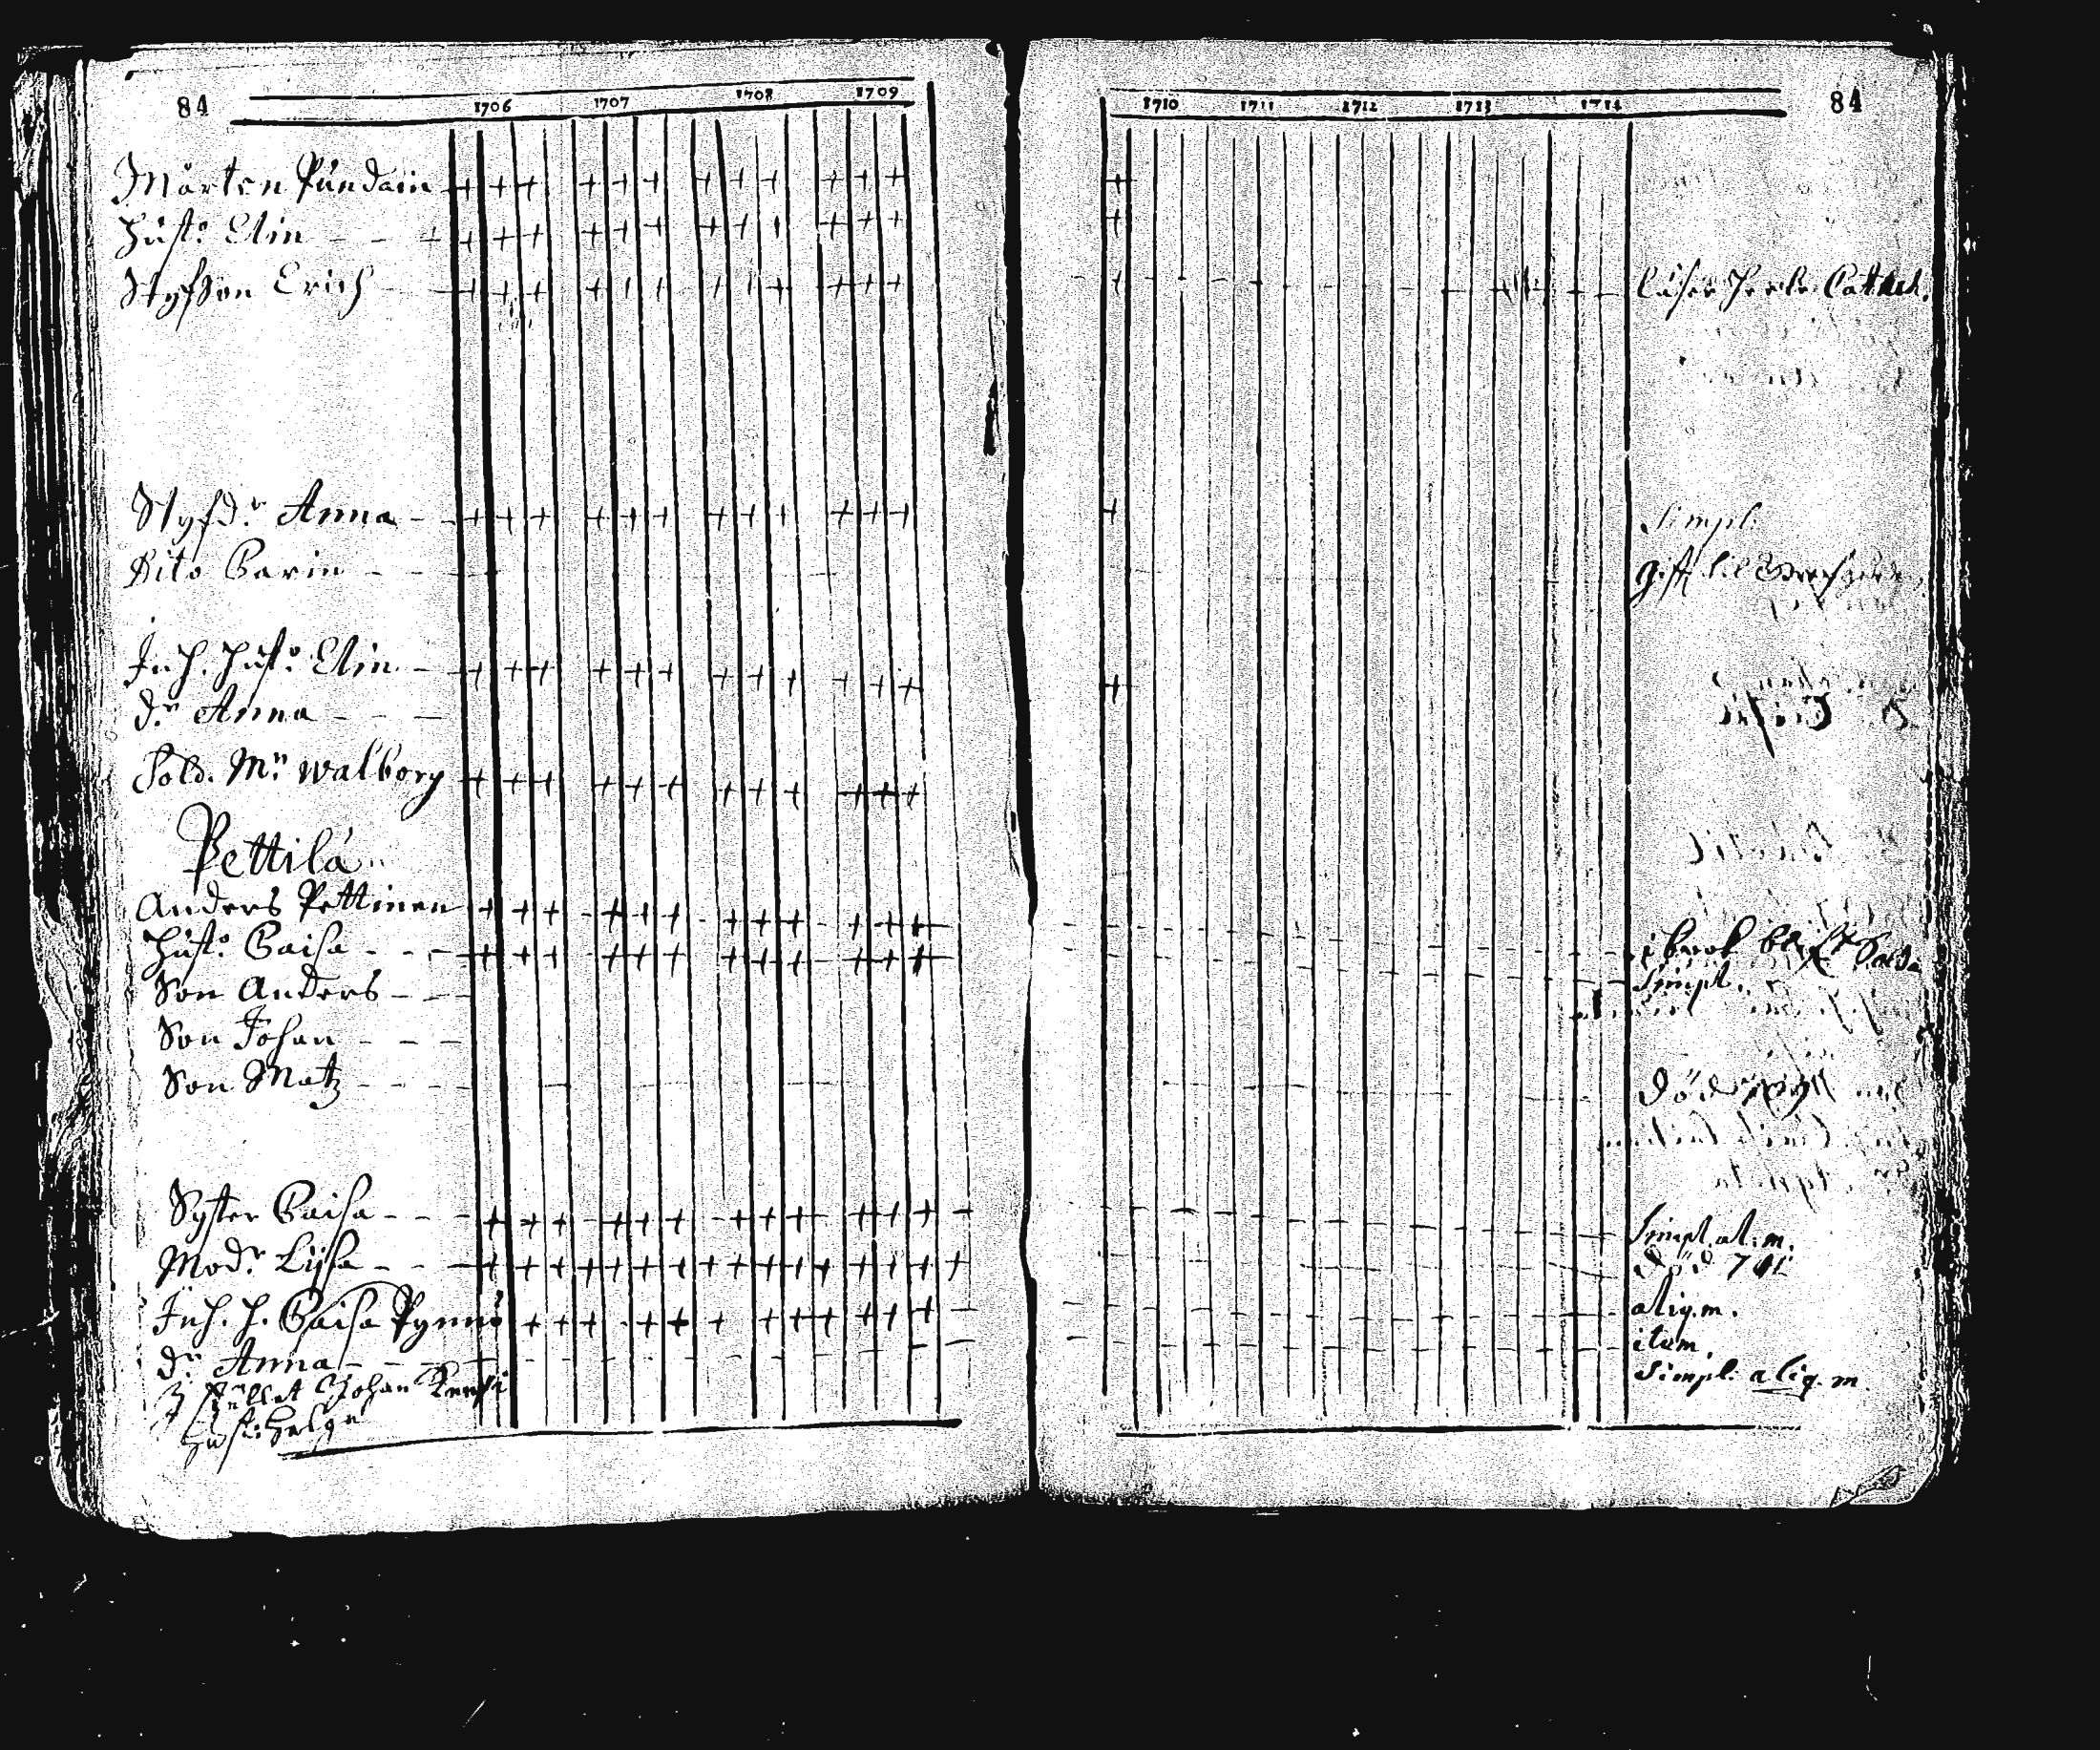 84 1706 1707 1708 1709
Mårten Pundain
Hust: Elin
Styfson Erich
Styfd:r Anna
Dito Carin
Inh. Hust: Elin
d:r Anna
Sold. M:n Walborg
Pettilä
Anders Pettinen
Hust: Caisa
Son Anders
Son Johan
Son Matz
Syster Caisa
Mod:r Lijsa
Inh. H. Caisa Pynnö
d:r Anna
Johan
1710 1711 1712 1713 1714 84
Cathech.
Simpl:
gift
Simpl.
död
Simpl. al. m.
död
aliq. m.
item.
Simpl. aliq. m.